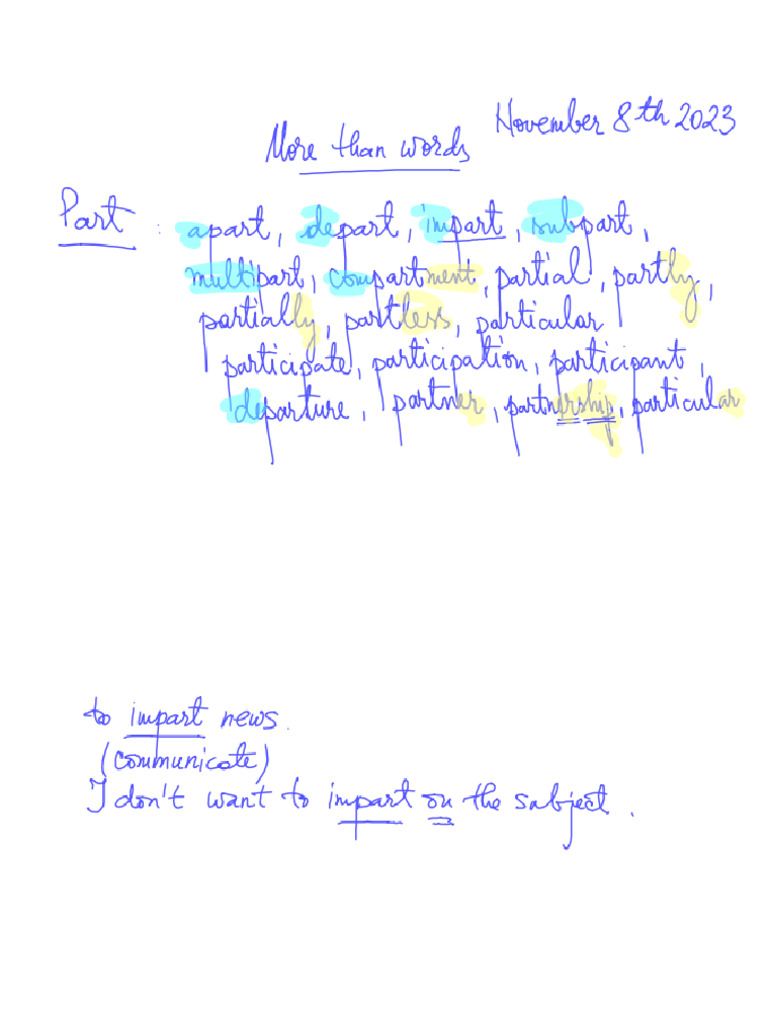 November 8th 2023
More than words
Part : apart, depart, impart, subpart,
multipart, compartment, partial, partly,
partially, partless, particular
participate, participation, participant,
departure, partner, partnership, particular
to impart news.
(communicate)
I don't want to impart on the subject.